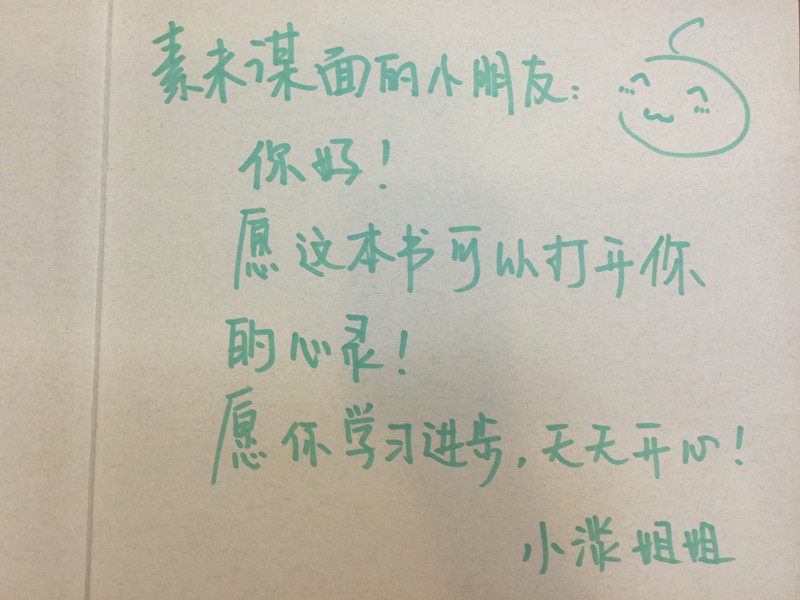 素未谋面的小朋友：
你好！
愿这本书可以打开你
的心灵！
愿你学习进步，天天开心！
小淡姐姐